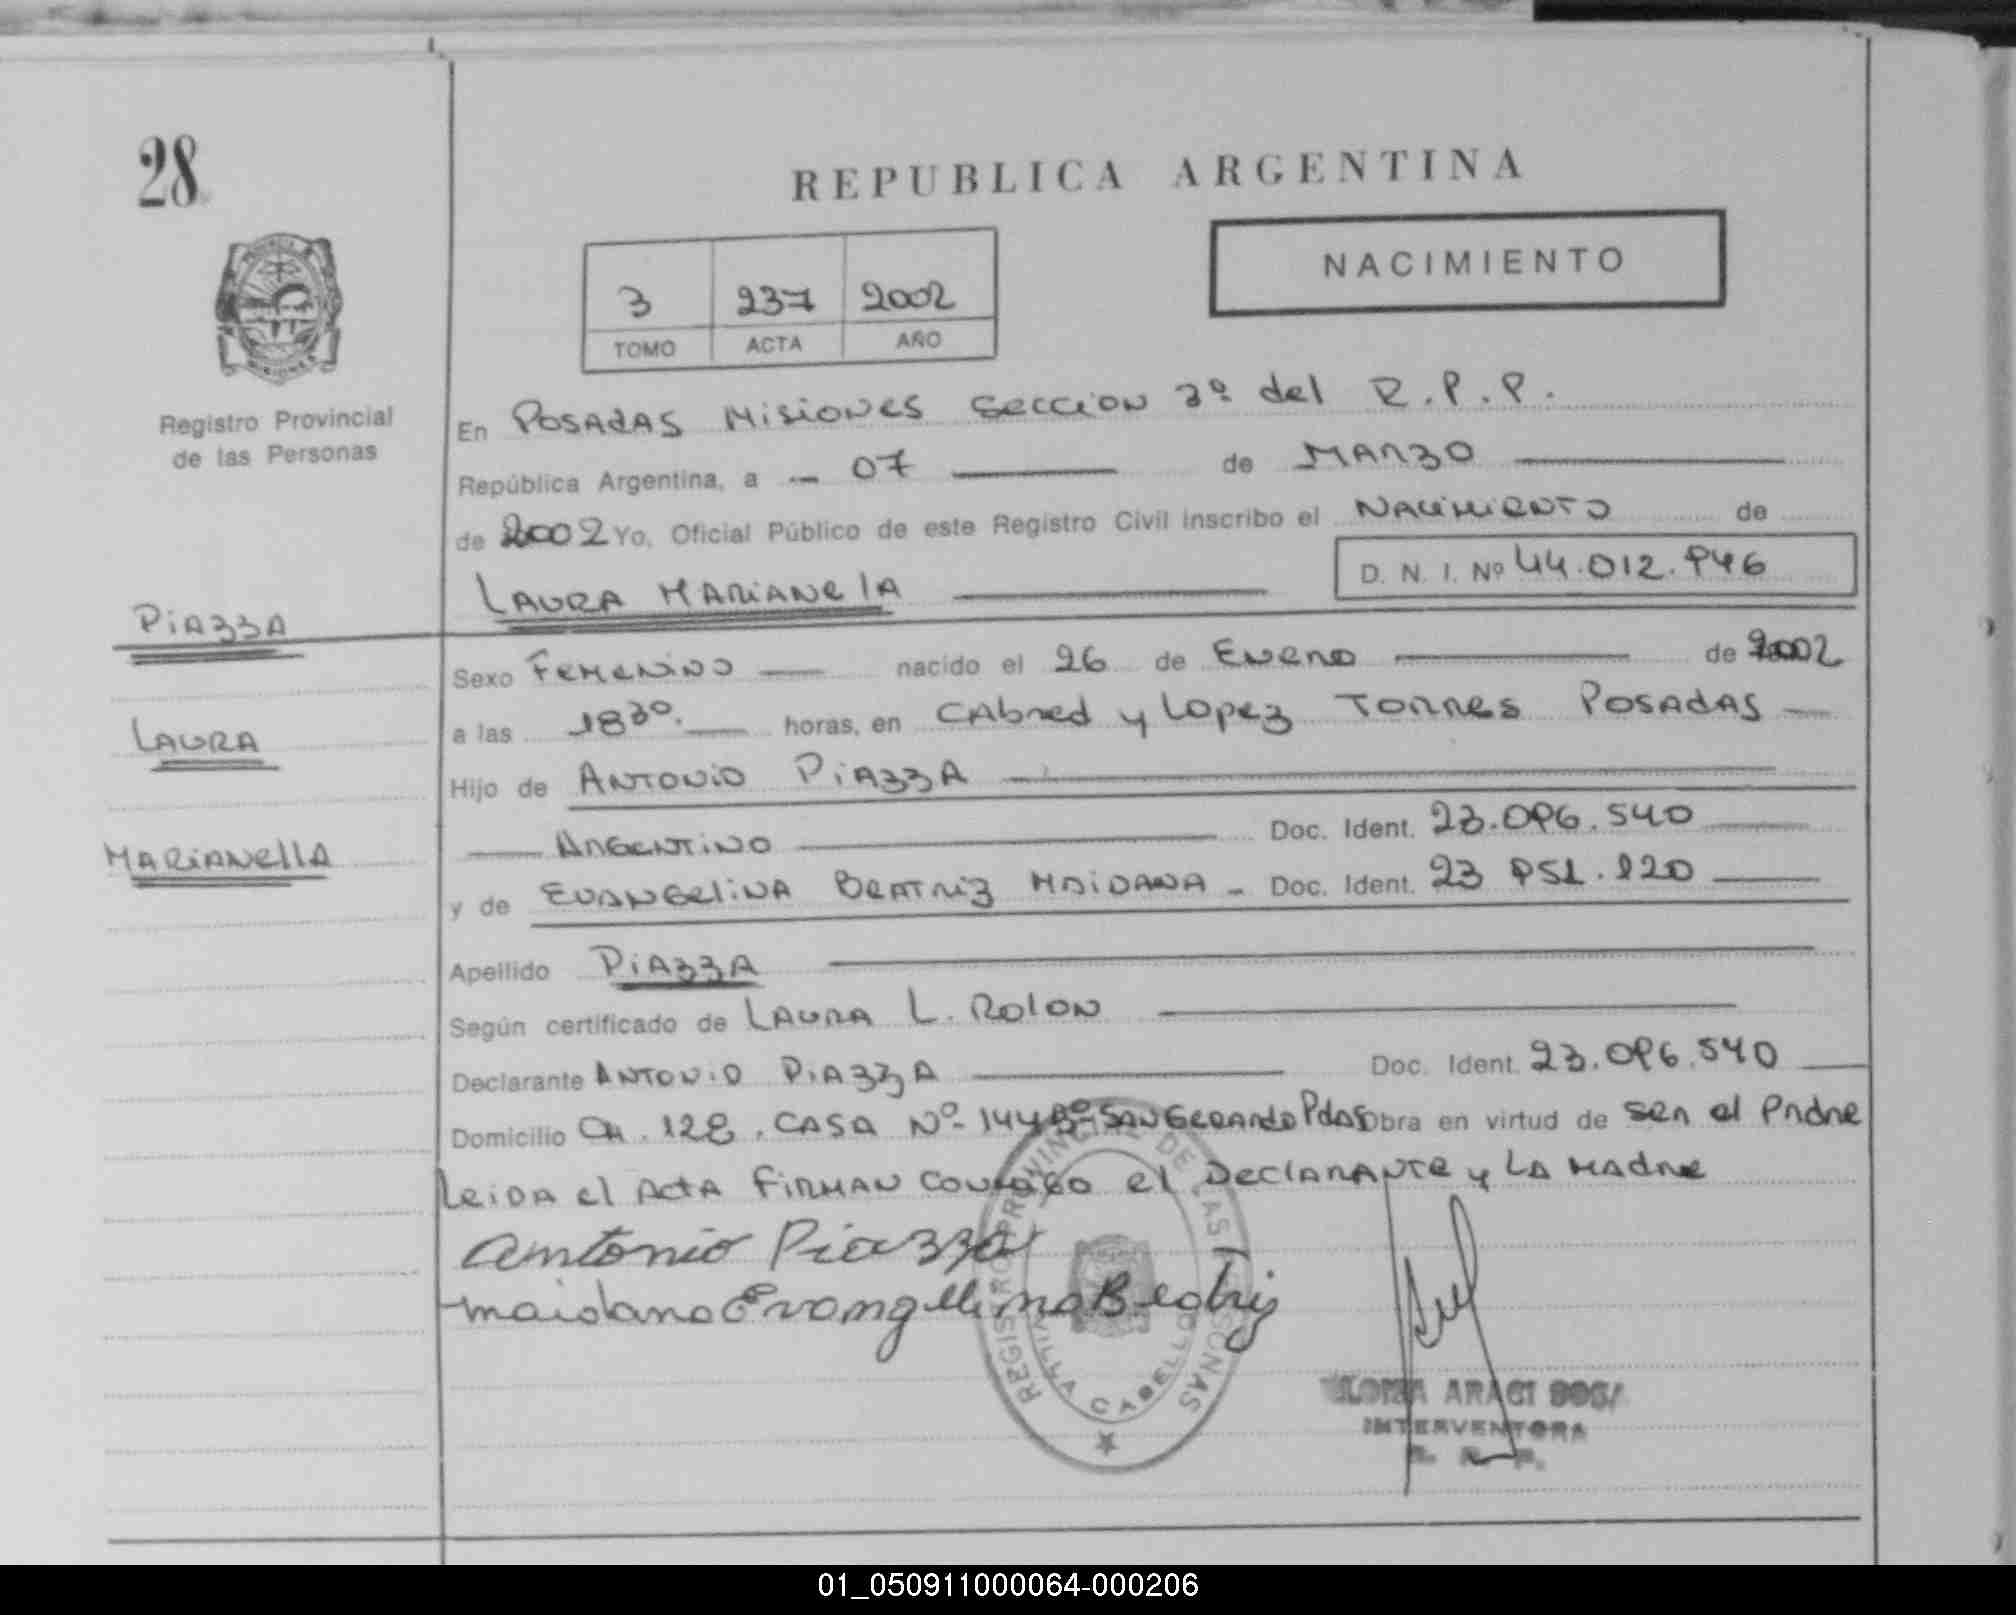 28
REPUBLICA ARGENTINA
NACIMIENTO
3 237 2002
TOMO ACTA AÑO
Registro Provincial
de las Personas
En POSADAS MISIONES SECCION 3º del R.P.P.
República Argentina, a 07 de MARZO
de 2002 Yo, Oficial Público de este Registro Civil inscribo el NACIMIENTO de
LAURA MARIANELA D. N. I. Nº 44.012.946
PIAZZA
Sexo FEMENINO nacido el 26 de ENERO de 2002
LAURA
a las 18 30. horas, en CABRED y LOPEZ TORRES POSADAS
Hijo de ANTONIO PIAZZA
ARGENTINO Doc. Ident. 23.096.540
MARIANELLA
y de EVANGELINA BEATRIZ MAIDANA - Doc. Ident. 23 951.120
Apellido PIAZZA
Según certificado de LAURA L. ROLON
Declarante ANTONIO PIAZZA Doc. Ident. 23.096.540
Domicilio CH. 128. CASA Nº 144 Bº SAN GERARDO Pdas Obra en virtud de SER el PADRE
LEIDA el ACTA FIRMAN CONMIGO el DECLARANTE y LA MADRE
Antonio Piazza
maidana Evangelina Beatriz
REGISTRO PROVINCIAL DE LAS PERSONAS
VILLA CABELLO
ARACI
INTERVENTORA
R. P.
01_050911000064-000206